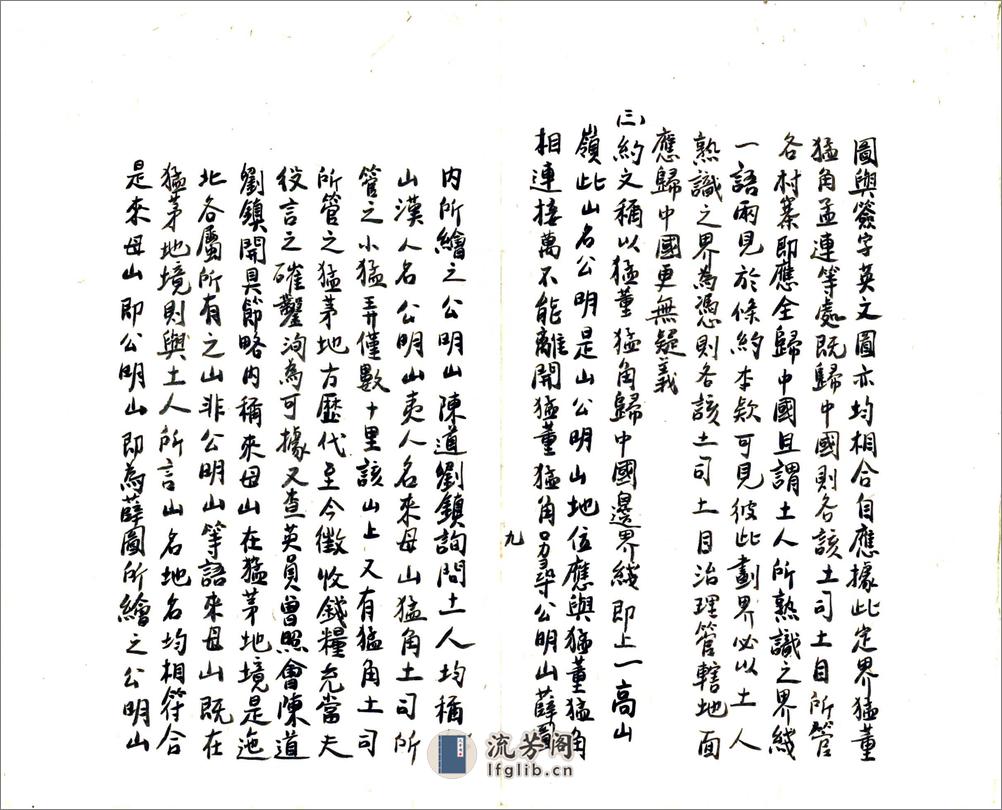 圖與簽字英文圖亦均相合自應據此定界猛董
猛角孟連等處既歸中國則各該土司土目所管
各村寨即應全歸中國且謂土人所熟識之界綫
一語兩見於條約本欵可見彼此劃界必以土人
熟識之界為憑則各該土司土目治理管轄地面
應歸中國更無疑義
三)約文稱以猛董猛角歸中國邊界綫即上一高山
嶺此山名公明是山公明山地位應與猛董猛角
相連接萬不能離開猛董猛角另尋公明山薛圖
九
內所繪之公明山陳道劉鎮詢問土人均稱
山漢人名公明山夷人名來母山猛角土司所
管之小猛弄僅數十里該山上又有猛角土司
所管之猛茅地方歷代至今徵收錢糧充當夫
役言之確鑿洵為可據又查英員曾照會陳道
劉鎮開具節略內稱來母山在猛茅地境是迤
北各屬所有之山非公明山等語來母山既在
猛茅地境則與土人所言山名地名均相符合
是來母山即公明山即為薛圖所繪之公明山
流芳閣
lfglib.cn